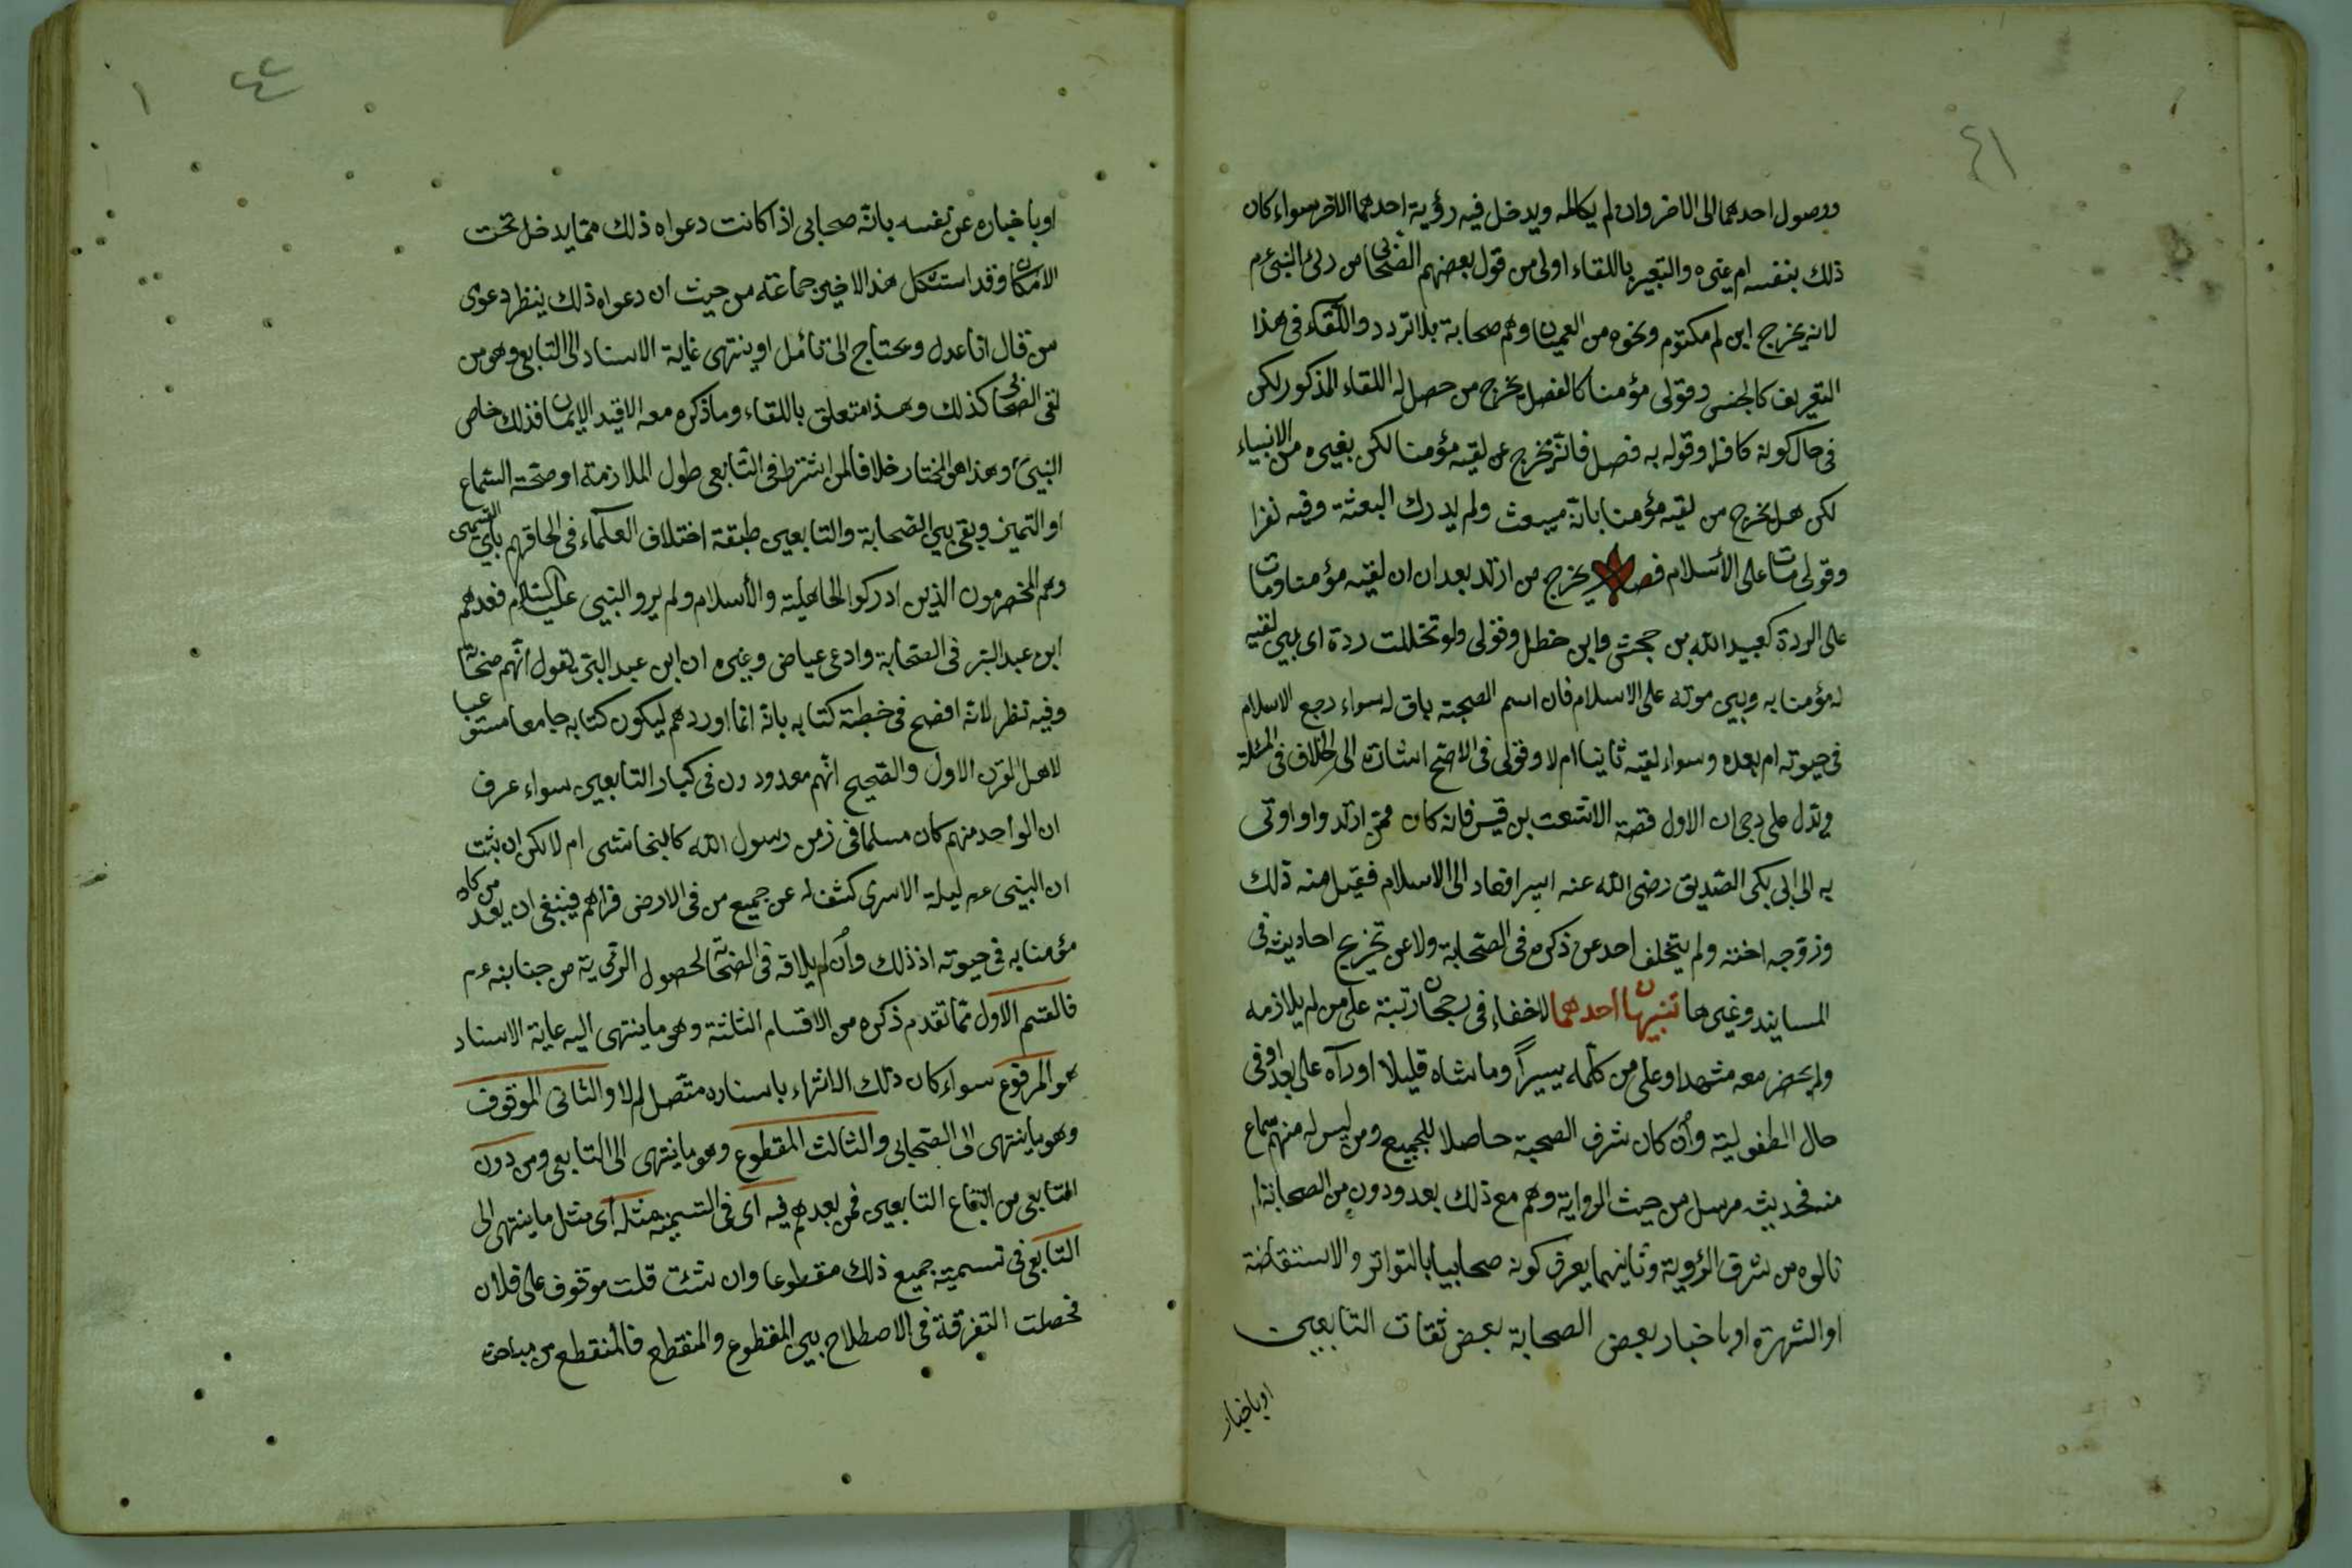 ٤١
ووصول احدهما الى الاخر وان لم يكالمه ويدخل فيه رؤية احدهما الآخر سواء كان
ذلك بنفسه ام بغيره والتعبير باللقاء اولى من قول بعضهم الصّحابى من رأى النبى عم
لانه يخرج ابن ام مكتوم ونحوه من العميان وهم صحابة بلا تردد واللّقاء فى هذا
التعريف كالجنس وقولى مؤمنا كالفصل يخرج من حصل له اللقاء المذكور لكن
فى حال كونه كافرا وقوله به فصل فانّه يخرج عن لقيه مؤمنا لكن بغيره من الانبياء
لكن هل يخرج من لقيه مؤمنا بانّه سيبعث ولم يدرك البعثة وفيه نظر
وقولى مات على الأسلام فصل يخرج من ارتد بعد ان لقيه مؤمنا ومات
على الردة كعبيد الله بن جحش وابن خطل وقولى ولو تخللت ردة اى بين لقيه
له مؤمنا به وبين موته على الاسلام فان اسم الصحبة باق له سواء رجع الاسلام
فى حيوته ام بعده وسواء لقيه ثانيا ام لا وقولى فى الاصح اشارة الى الخلاف فى المسئلة
ويدل على رجحان الاول قصة الاشعث بن قيس فانه كان ممّن ارتد واوتى
به الى ابى بكر الصّديق رضى الله عنه اسيرا فعاد الى الاسلام فقبل منه ذلك
وزوّجه اخته ولم يتخلف احد عن ذكره فى الصّحابة ولا عن تخريج احاديثه فى
المسانيد وغيرها تنبيهان احدهما لا خفاء فى رجحان رتبة على من لم يلازمه
ولم يحضر معه مشهدا وعلى من كلّمه يسيراً وماشاه قليلا او رآه على بعد او فى
حال الطفولية وأن كان شرف الصحبة حاصلا للجميع ومن ليس له منهم سماع
منه فحديثه مرسل من حيث الرواية وهم مع ذلك معدودون من الصحابة لم
نالوه من شرف الرؤية وثانيهما يعرف كونه صحابيا بالتواتر والاستفاضة
او الشهرة او باخبار بعض الصحابة بعض ثقات التابعين
او باخبار
٤٢
١
او باخباره عن نفسه بانّه صحابى اذا كانت دعواه ذلك ممّا يدخل تحت
الامكان وقد استشكل هذا الاخير جماعة من حيث ان دعواه ذلك ينظر دعوى
من قال انا عدل ويحتاج الى تأمّل او ينتهى غاية الاسناد الى التابعى وهو من
لقى الصّحابى كذلك وهذا متعلق باللقاء وما ذكره معه الا قيد الايمان فذلك خاص
النبىّ وهذا هو المختار خلافا لمن اشترط فى التّابعى طول الملازمة او صحّة السّماع
او التميز وبقى بين الصّحابة والتابعين طبقة اختلاف العلمآء فى الحاقهم بأىّ القسمين
وهم المخضرمون الذين ادركوا الجاهلية والأسلام ولم يروا النبى عليه السّلام فعدّهم
ابن عبد البر فى الصّحابة وادعى عياض وغيره ان ابن عبد البرّ يقول انّهم صحابة
وفيه نظر لانّه افصح فى خطبة كتابه بانّه انّما اوردهم ليكون كتابه جامعا مستوعبا
لاهل القرن الاول والصّحيح انّهم معدودون فى كبار التابعين سواء عرف
ان الواحد منهم كان مسلما فى زمن رسول الله كالنجاشى ام لا لكن ان ثبت
ان النبى عم ليلة الاسرى كشف له عن جميع من فى الارض فراهم فينبغى ان يعد من كان
مؤمنا به فى حيوته اذ ذلك وأن لم يلاقه فى الصّحابة لحصول الرؤية من جنابه عم
فالقسم الاول ممّا تقدم ذكره من الاقسام الثلثة وهو ما ينتهى اليه غاية الاسناد
هو المرفوع سواء كان ذلك الانتهاء باسناده متّصل ام لا والثانى الموقوف
وهو ما ينتهى الى الصّحابى والثالث المقطوع وهو ما ينتهى الى التابعى ومن دون
التابعى من اتباع التابعين فمن بعدهم فيه اى فى التسمية مثله اى مثل ما ينتهى الى
التابعى فى تسمية جميع ذلك مقطوعا وان شئت قلت موقوف على فلان
فحصلت التفرقة فى الاصطلاح بين المقطوع والمنقطع فالمنقطع من مباحث